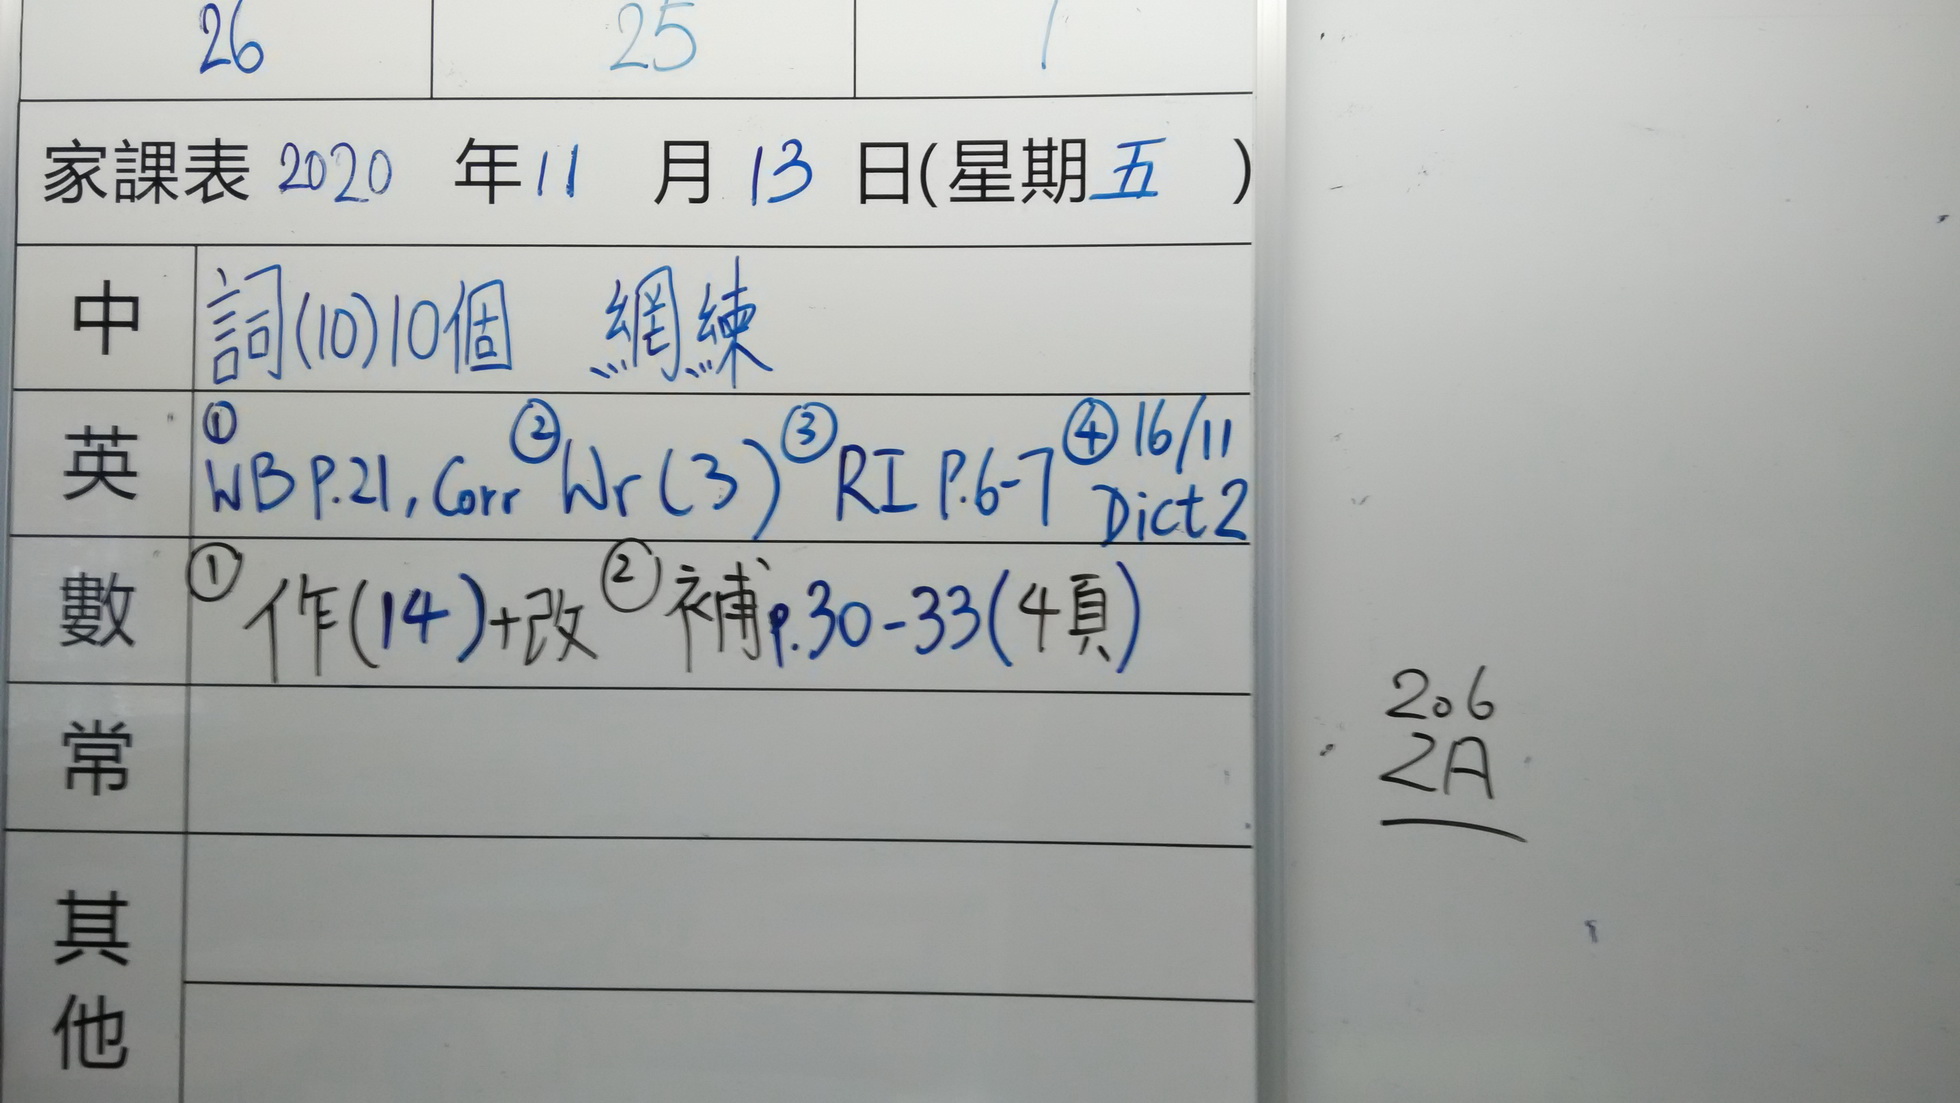 26 25 1
家課表 2020 年 11 月 13 日(星期五)
中 詞(10)10個 網練
英 ①WB P.21, Corr ②Wr(3) ③RI P.6-7 ④16/11 Dict 2
數 ①作(14)+改 ②補p.30-33(4頁)
常
其他
206
2A